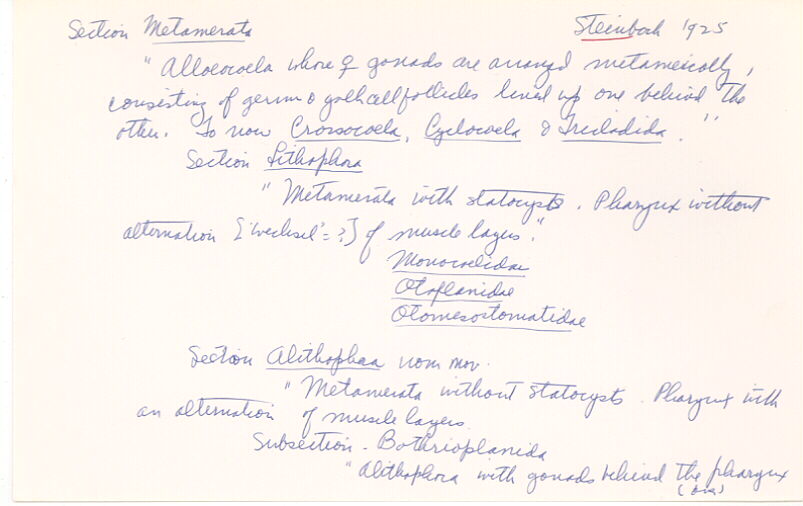 Section Metamerata Steinbock 1925
"Alloeocoela whose ♀ gonads are arranged metamerically,
consisting of germ & yolk cell follicles lined up one behind the
other. To now Crossocoela, Cyclocoela & Tricladida."
Section Lithophora
"Metamerata with statocysts. Pharynx without
alternation ['wechsel' = ?] of muscle layers."
Monocelidae
Otoplanidae
Otomesostomatidae
Section Alithophora nom nov.
"Metamerata without statocysts. Pharynx with
an alternation of muscle layers.
Subsection - Bothrioplanida
"Alithophora with gonads behind the pharynx
(over)